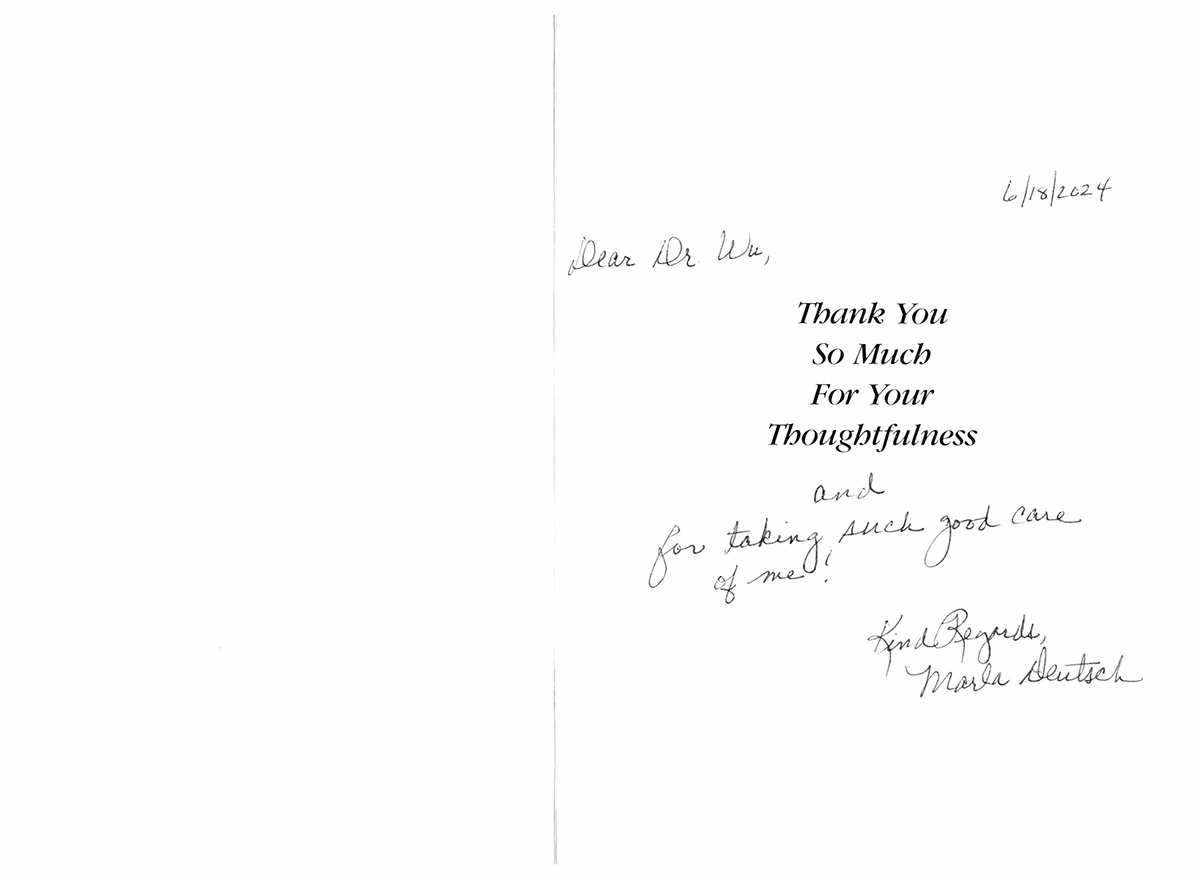 6/18/2024
Dear Dr Wu,
Thank You
So Much
For Your
Thoughtfulness
and
for taking such good care
of me!
Kind Regards,
Marla Deutsch